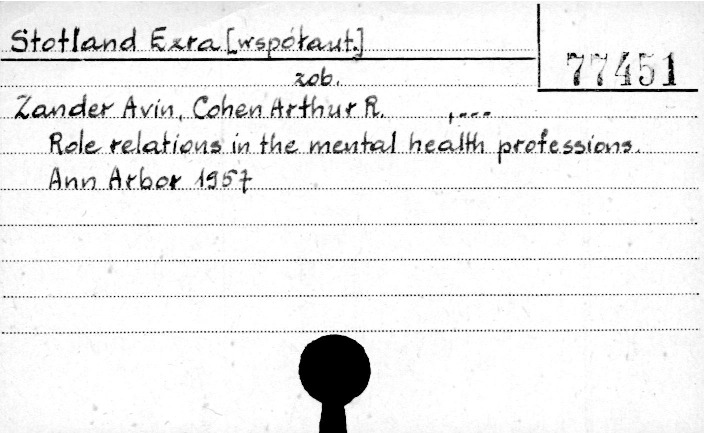 Stotland Ezra [współaut.]
77451
zob.
Zander Avin, Cohen Arthur R. ,---
Role relations in the mental health professions.
Ann Arbor 1957